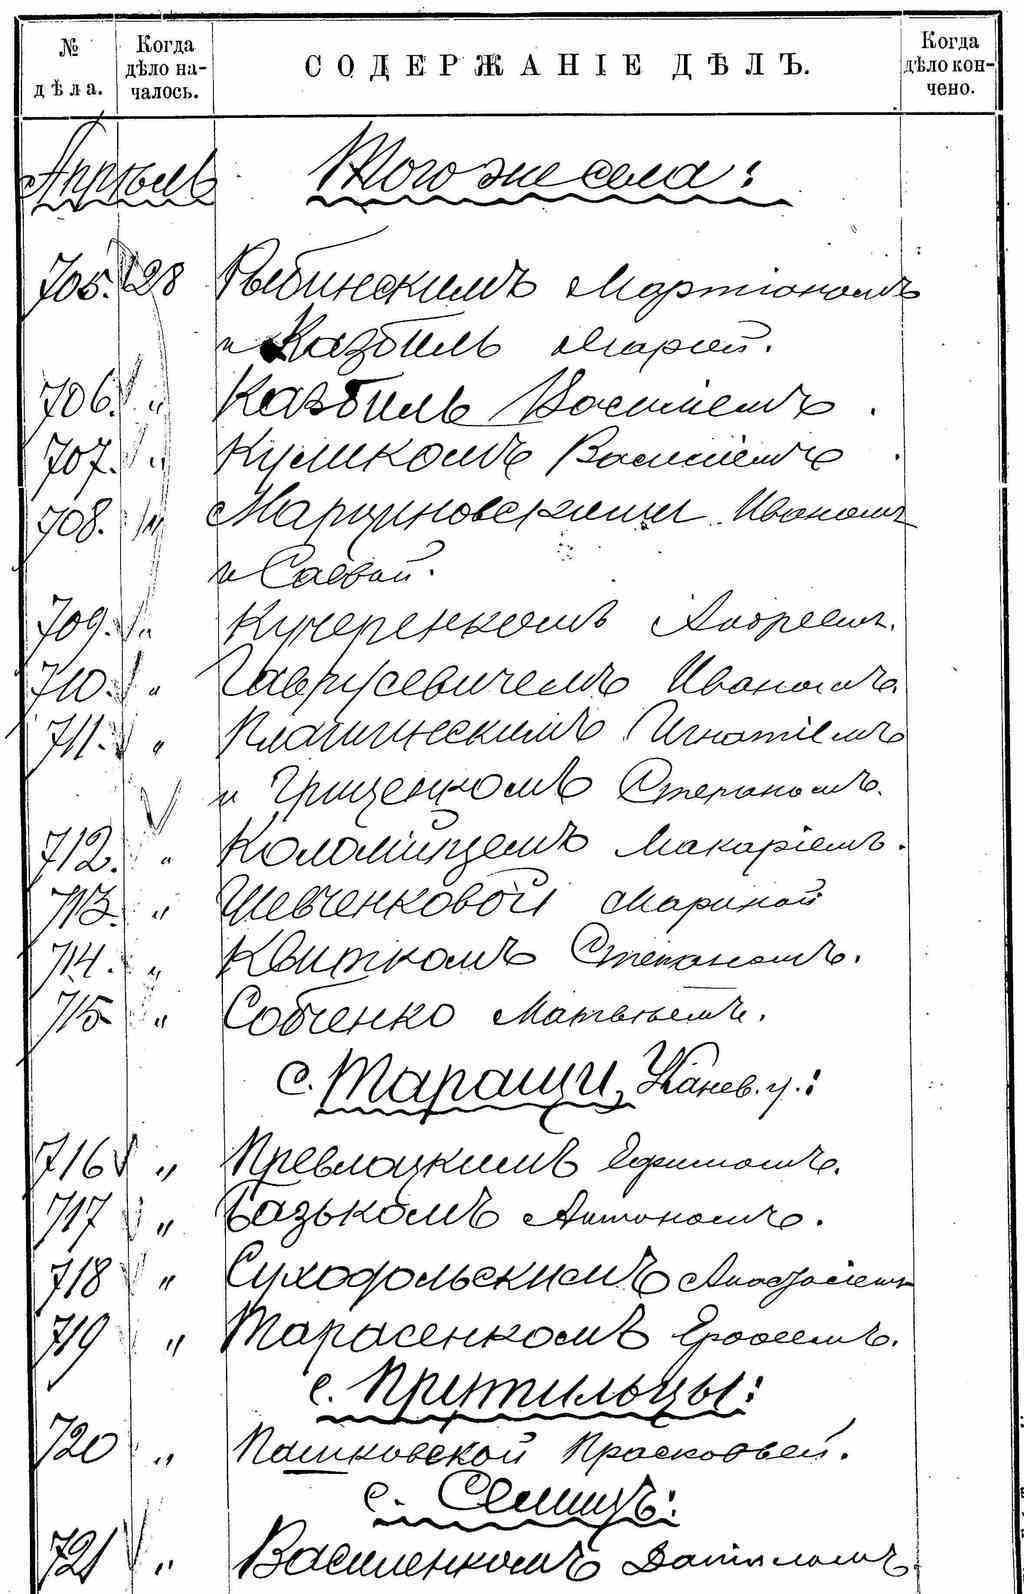 № дѣла.
Когда дѣло началось.
СОДЕРЖАНІЕ ДѢЛЪ.
Когда дѣло кончено.
Апрѣль Того же села:
705. 28 Рыбинскимъ Мартіаномъ
и Казбиль Маріей.
706. " Казбиль Василіемъ.
707. " Куликомъ Василіемъ.
708. " Марциновскими Иваномъ
и Саввой.
709. " Кучеренкомъ Андреемъ.
710. " Гаврусевичемъ Иваномъ.
711. " Игнатіемъ
и Грищенкомъ Степаномъ.
712. " Коломійцемъ Макаріемъ.
713. " Шевченковой Мариной
714. " Квиткомъ Степаномъ.
715 " Собченко Матвѣемъ.
с. Таращи, Канев. у.:
716 " Превлацкимъ Ефимомъ.
717 " Антономъ.
718 " Суходольскимъ
719 " Тарасенкомъ Ерофеемъ.
с. Притыльцы:
720 " Пашковской Прасковьей.
с. Семицъ:
721 " Василенкомъ Даніиломъ.